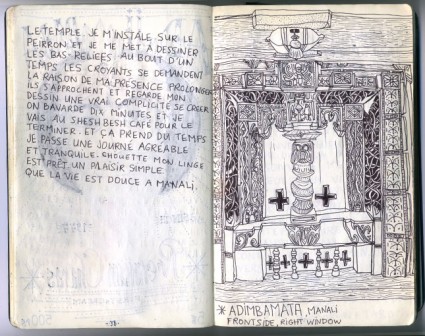 LE TEMPLE. JE M'INSTALE SUR LE
PEIRRON ET JE ME MET À DESSINER
LES BAS-RELIEFS. AU BOUT D'UN
TEMPS LES CROYANTS SE DEMANDENT
LA RAISON DE MA PRESENCE PROLONGER
ILS S'APPROCHENT ET REGARDE MON
DESSIN UNE VRAI COMPLICITÉ SE CREER
ON BAVARDE DIX MINUTES ET JE
VAIS AU SHESH BESH CAFÉ POUR LE
TERMINER. ET ÇA PREND DU TEMPS
JE PASSE UNE JOURNÉ AGREABLE
ET TRANQUILE. CHOUETTE MON LINGE
EST PRÊT UN PLAISIR SIMPLE
QUE LA VIE EST DOUCE A MANALI.
-38-
* ADIMBAMATA, MANALI
FRONTSIDE, RIGHT WINDOW